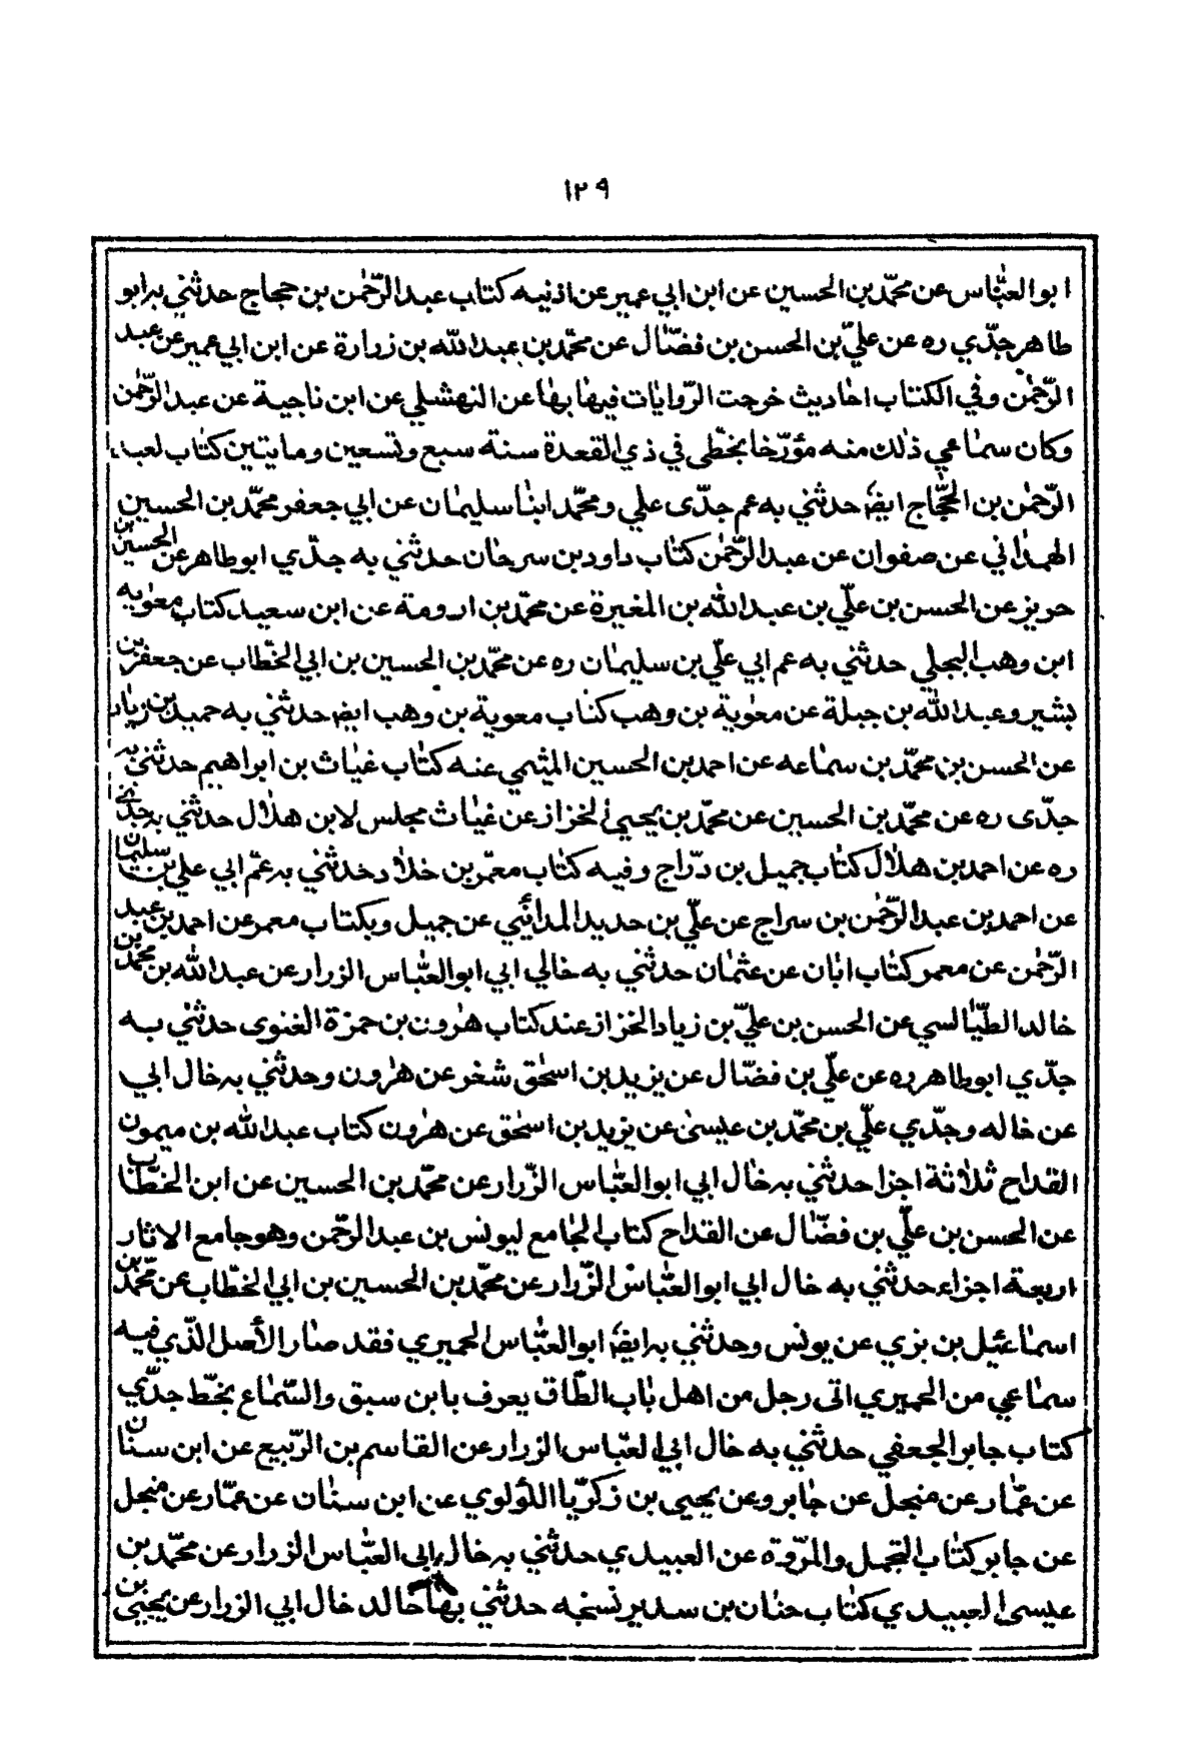 ١٢٩
ابو العبّاس عن محمّد بن الحسين عن ابن ابي عمير عن اذنيه كتاب عبد الرّحمٰن بن حجاج حدثني به ابو
طاهر جدّي ره عن عليّ بن الحسن بن فضّال عن محمّد بن عبد اللّه بن زرارة عن ابن ابي عمير عن عبد
الرّحمٰن وفي الكتاب احاديث خرجت الرّوايات فيها بها عن النهشلي عن ابن ناجية عن عبد الرّحمٰن
وكان سماعي ذلك منه مؤرّخا بخطّي في ذي القعدة سنة سبع وتسعين ومايتين كتاب لعبد
الرّحمٰن بن الحجّاج ايضا حدثني به عم جدّى علي ومحمّد ابنا سليمان عن ابي جعفر محمّد بن الحسين
الهمداني عن صفوان عن عبد الرّحمٰن كتاب داود بن سرحان حدثني به جدّي ابو طاهر عن الحسين بن
حريز عن الحسن بن علّي بن عبد اللّه بن المغيرة عن محمّد بن ارومة عن ابن سعيد كتاب معويه
ابن وهب البجلي حدثني به عم ابي علّي بن سليمان ره عن محمّد بن الحسين بن ابي الخطّاب عن جعفر بن
بشير وعبد اللّه بن جبلة عن معوية بن وهب كتاب معوية بن وهب ايضا حدثني به حميد بن زياد
عن الحسن بن محمّد بن سماعه عن احمد بن الحسين الميثمي عنه كتاب غياث بن ابراهيم حدثني به
جدّى ره عن محمّد بن الحسين عن محمّد بن يحيى الخزاز عن غياث مجلس لابن هلال حدثني به جدّي
ره عن احمد بن هلال كتاب جميل بن درّاج وفيه كتاب معمّر بن خلاد حدثني به عمّ ابي علي بن سليمان
عن احمد بن عبد الرّحمٰن بن سراج عن علّي بن حديد المدائني عن جميل وبكتاب معمر عن احمد بن عبد
الرّحمٰن عن معمر كتاب ابان عن عثمان حدثني به خالي ابي ابو العبّاس الزرار عن عبد اللّه بن محمّد بن
خالد الطّيالسي عن الحسن بن عليّ بن زياد الخزاز عند كتاب هرون بن حمزة الغنوى حدثني به
جدّي ابو طاهر ره عن علّي بن فضّال عن يزيد بن اسحٰق شغر عن هرون وحدثني به خال ابي
عن خاله وجدّي علّي بن محمّد بن عيسىٰ عن يزيد بن اسحٰق عن هرون كتاب عبد اللّه بن ميمون
القداح ثلاثة اجزا حدثني به خال ابي ابو العبّاس الزّرار عن محمّد بن الحسين عن ابن الخطّاب
عن الحسن بن علّي بن فضّال عن القداح كتاب الجامع ليونس بن عبد الرّحمٰن وهو جامع الاثار
اربعة اجزاء حدثني به خال ابي ابو العبّاس الزّرار عن محمّد بن الحسين بن ابي الخطّاب عن محمّد بن
اسماعيل بن بزي عن يونس وحدثني به ايضا ابو العبّاس الحميري فقد صار الأصل الذّي فيه
سماعي من الحميري اتى رجل من اهل باب الطّاق يعرف بابن سبق والسّماع بخطّ جدّي
كتاب جابر الجعفي حدثني به خال ابي العبّاس الزرار عن القاسم بن الرّبيع عن ابن سنان
عن عمّار عن منجل عن جابر وعن يحيى بن زكريّا اللؤلوي عن ابن سنان عن عمّار عن منجل
عن جابر كتاب التجمل والمرّوة عن العبيدي حدثني به خال ابى العبّاس الزرار عن محمّد بن
عيسى العبيدي كتاب حنان بن سدير نسخه حدثني بها خالد خال ابي الزرار عن يحيىٰ بن